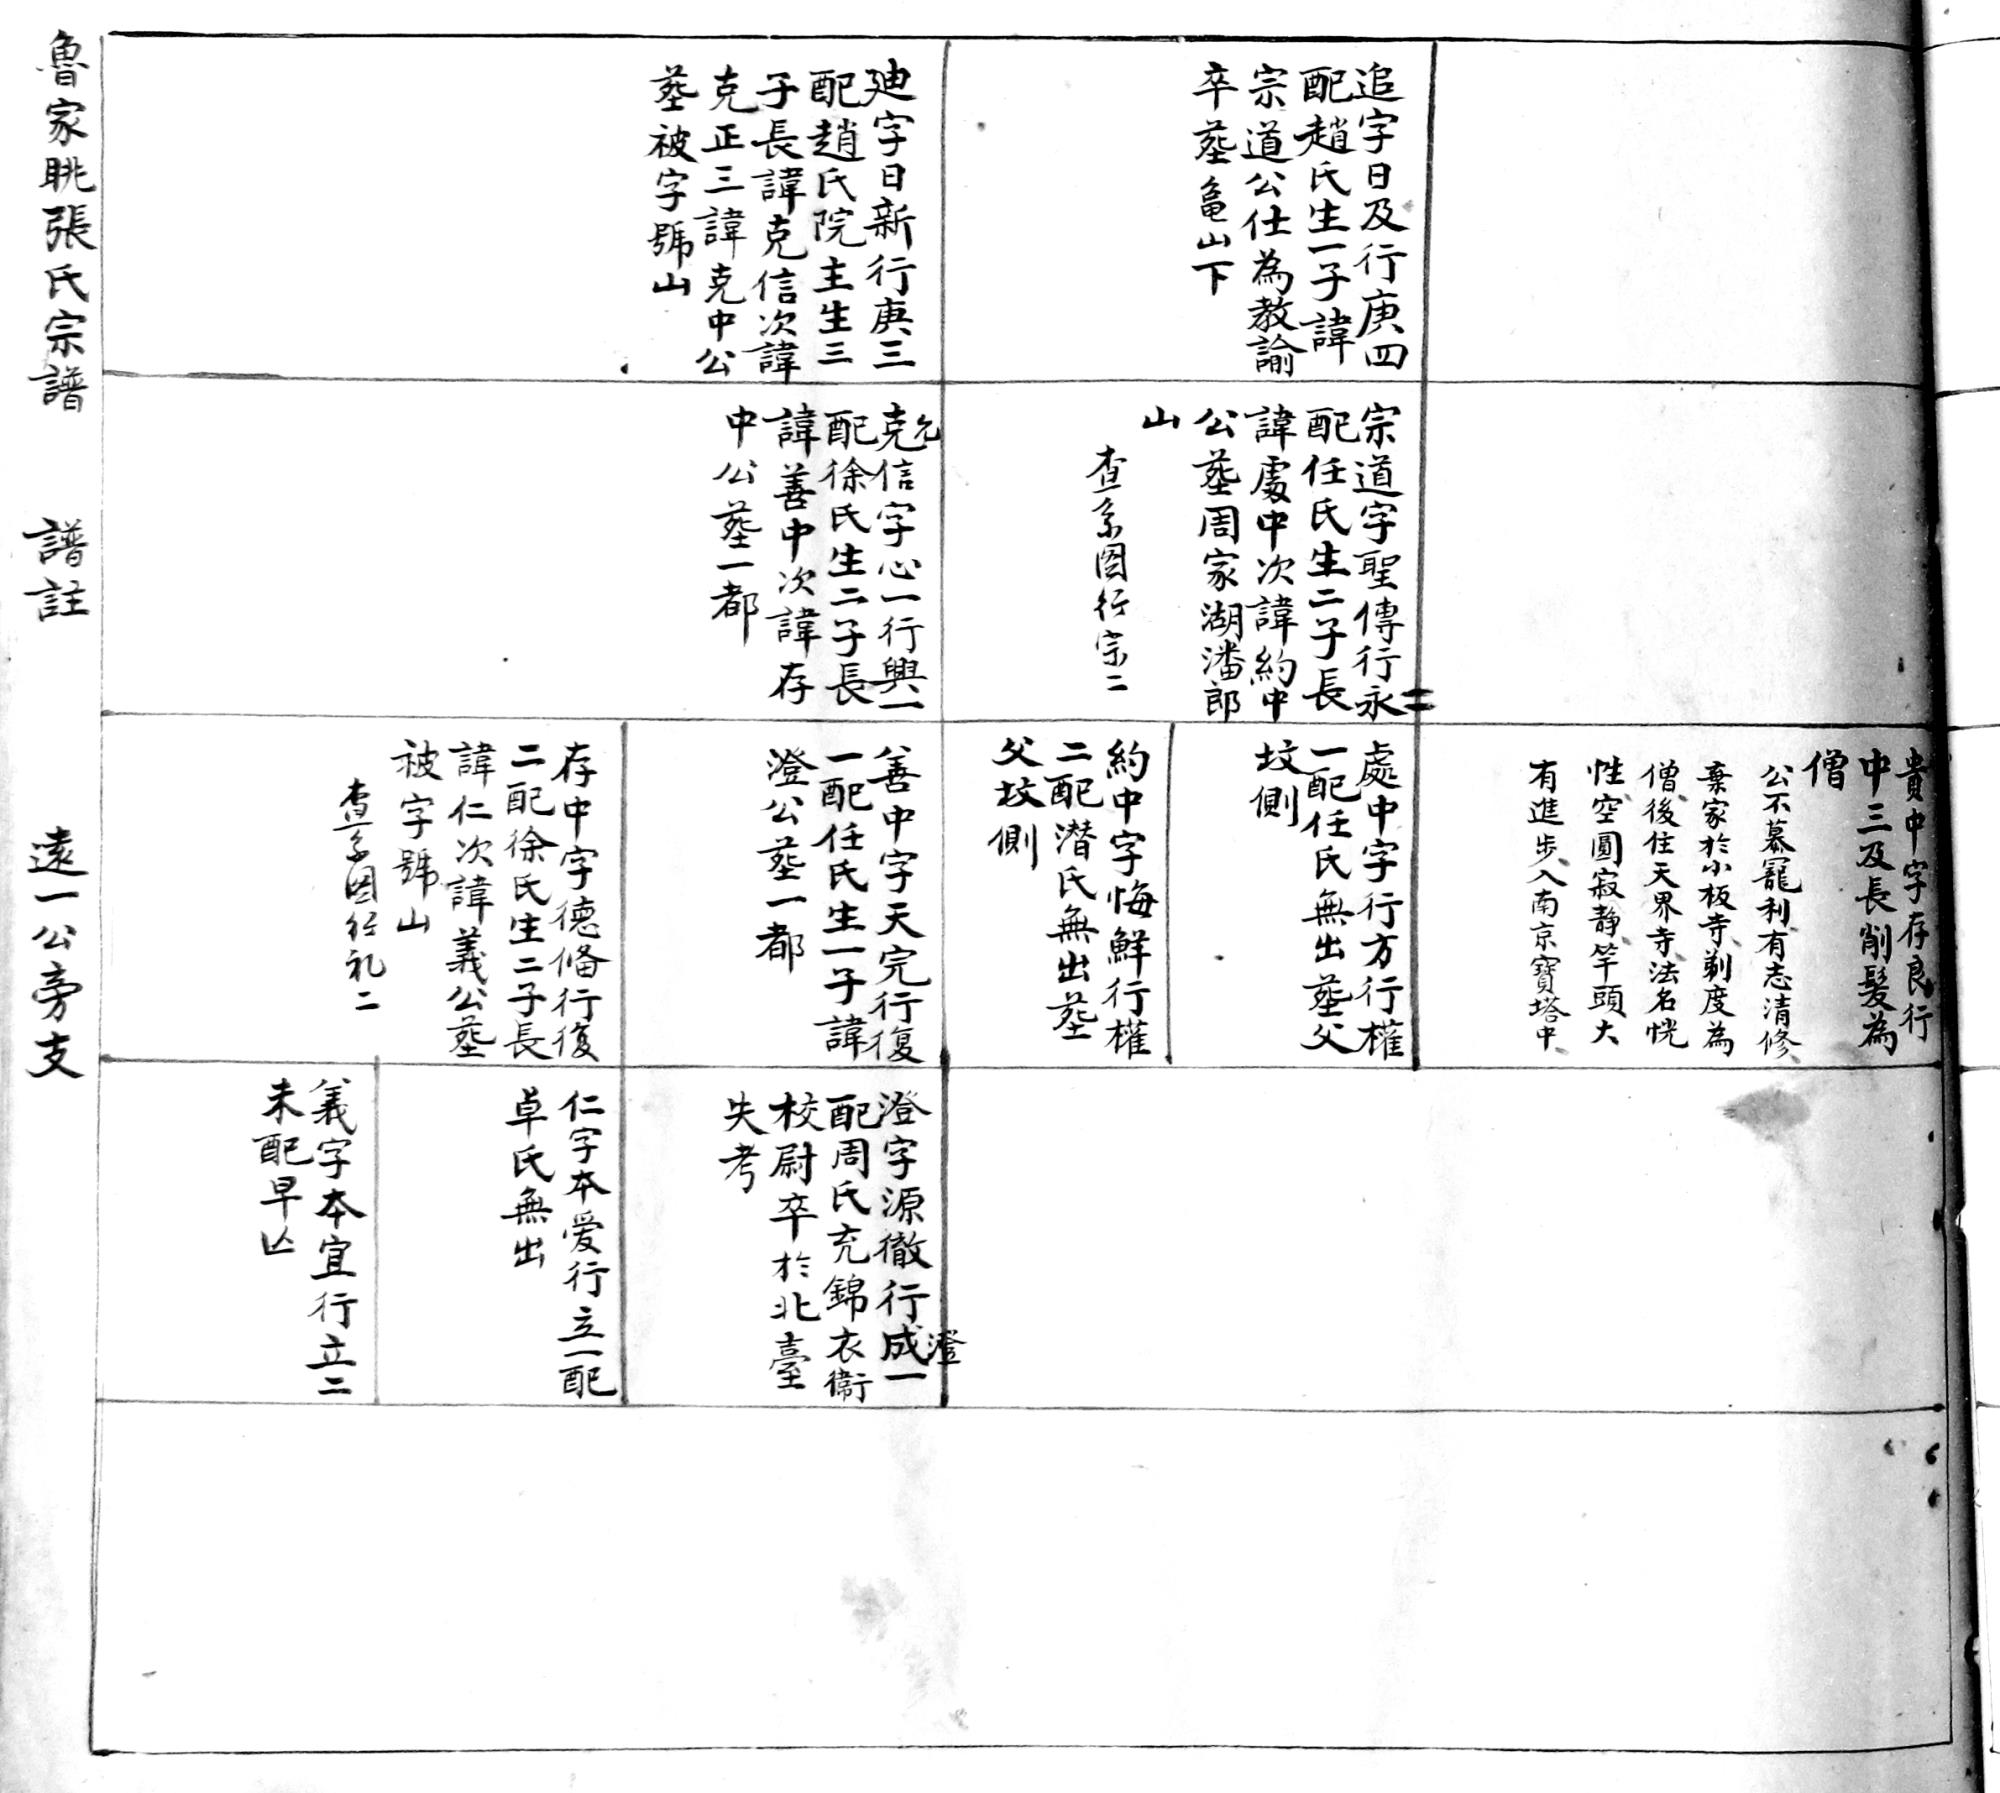 追字日及行庚四
配趙氏生一子諱
宗道公仕為教諭
卒葬龜山下
廸字日新行庚三
配趙氏院主生三
子長諱克信次諱
克正三諱克中公
葬被字號山
宗道字聖傳行永二
配任氏生二子長
諱處中次諱約中
公葬周家湖潘郎
山
查系图行宗二
允
克信字心一行興一
配徐氏生二子長
諱善中次諱存
中公葬一都
貴中字存良行
中三及長削髮為
僧
公不慕寵利、有志清修、
棄家於小板寺、剃度為
僧、後住天界寺、法名恍
性、空圓寂静、竿頭大
有進步、入南京寶塔中、
處中字行方行權
一配任氏無出葬父
坟側
約中字悔鮮行權
二配潜氏無出葬
父坟側
善中字天完行復
一配任氏生一子諱
澄公葬一都
存中字德脩行復
二配徐氏生二子長
諱仁次諱義公葬
被字號山
查系图行礼二
澄字源徹行成一
澄
配周氏充錦衣衞
校尉卒於北臺
失考
仁字本爱行立一配
卓氏無出
義字本宜行立二
未配早亾
魯家眺張氏宗譜
譜註
遠一公旁支